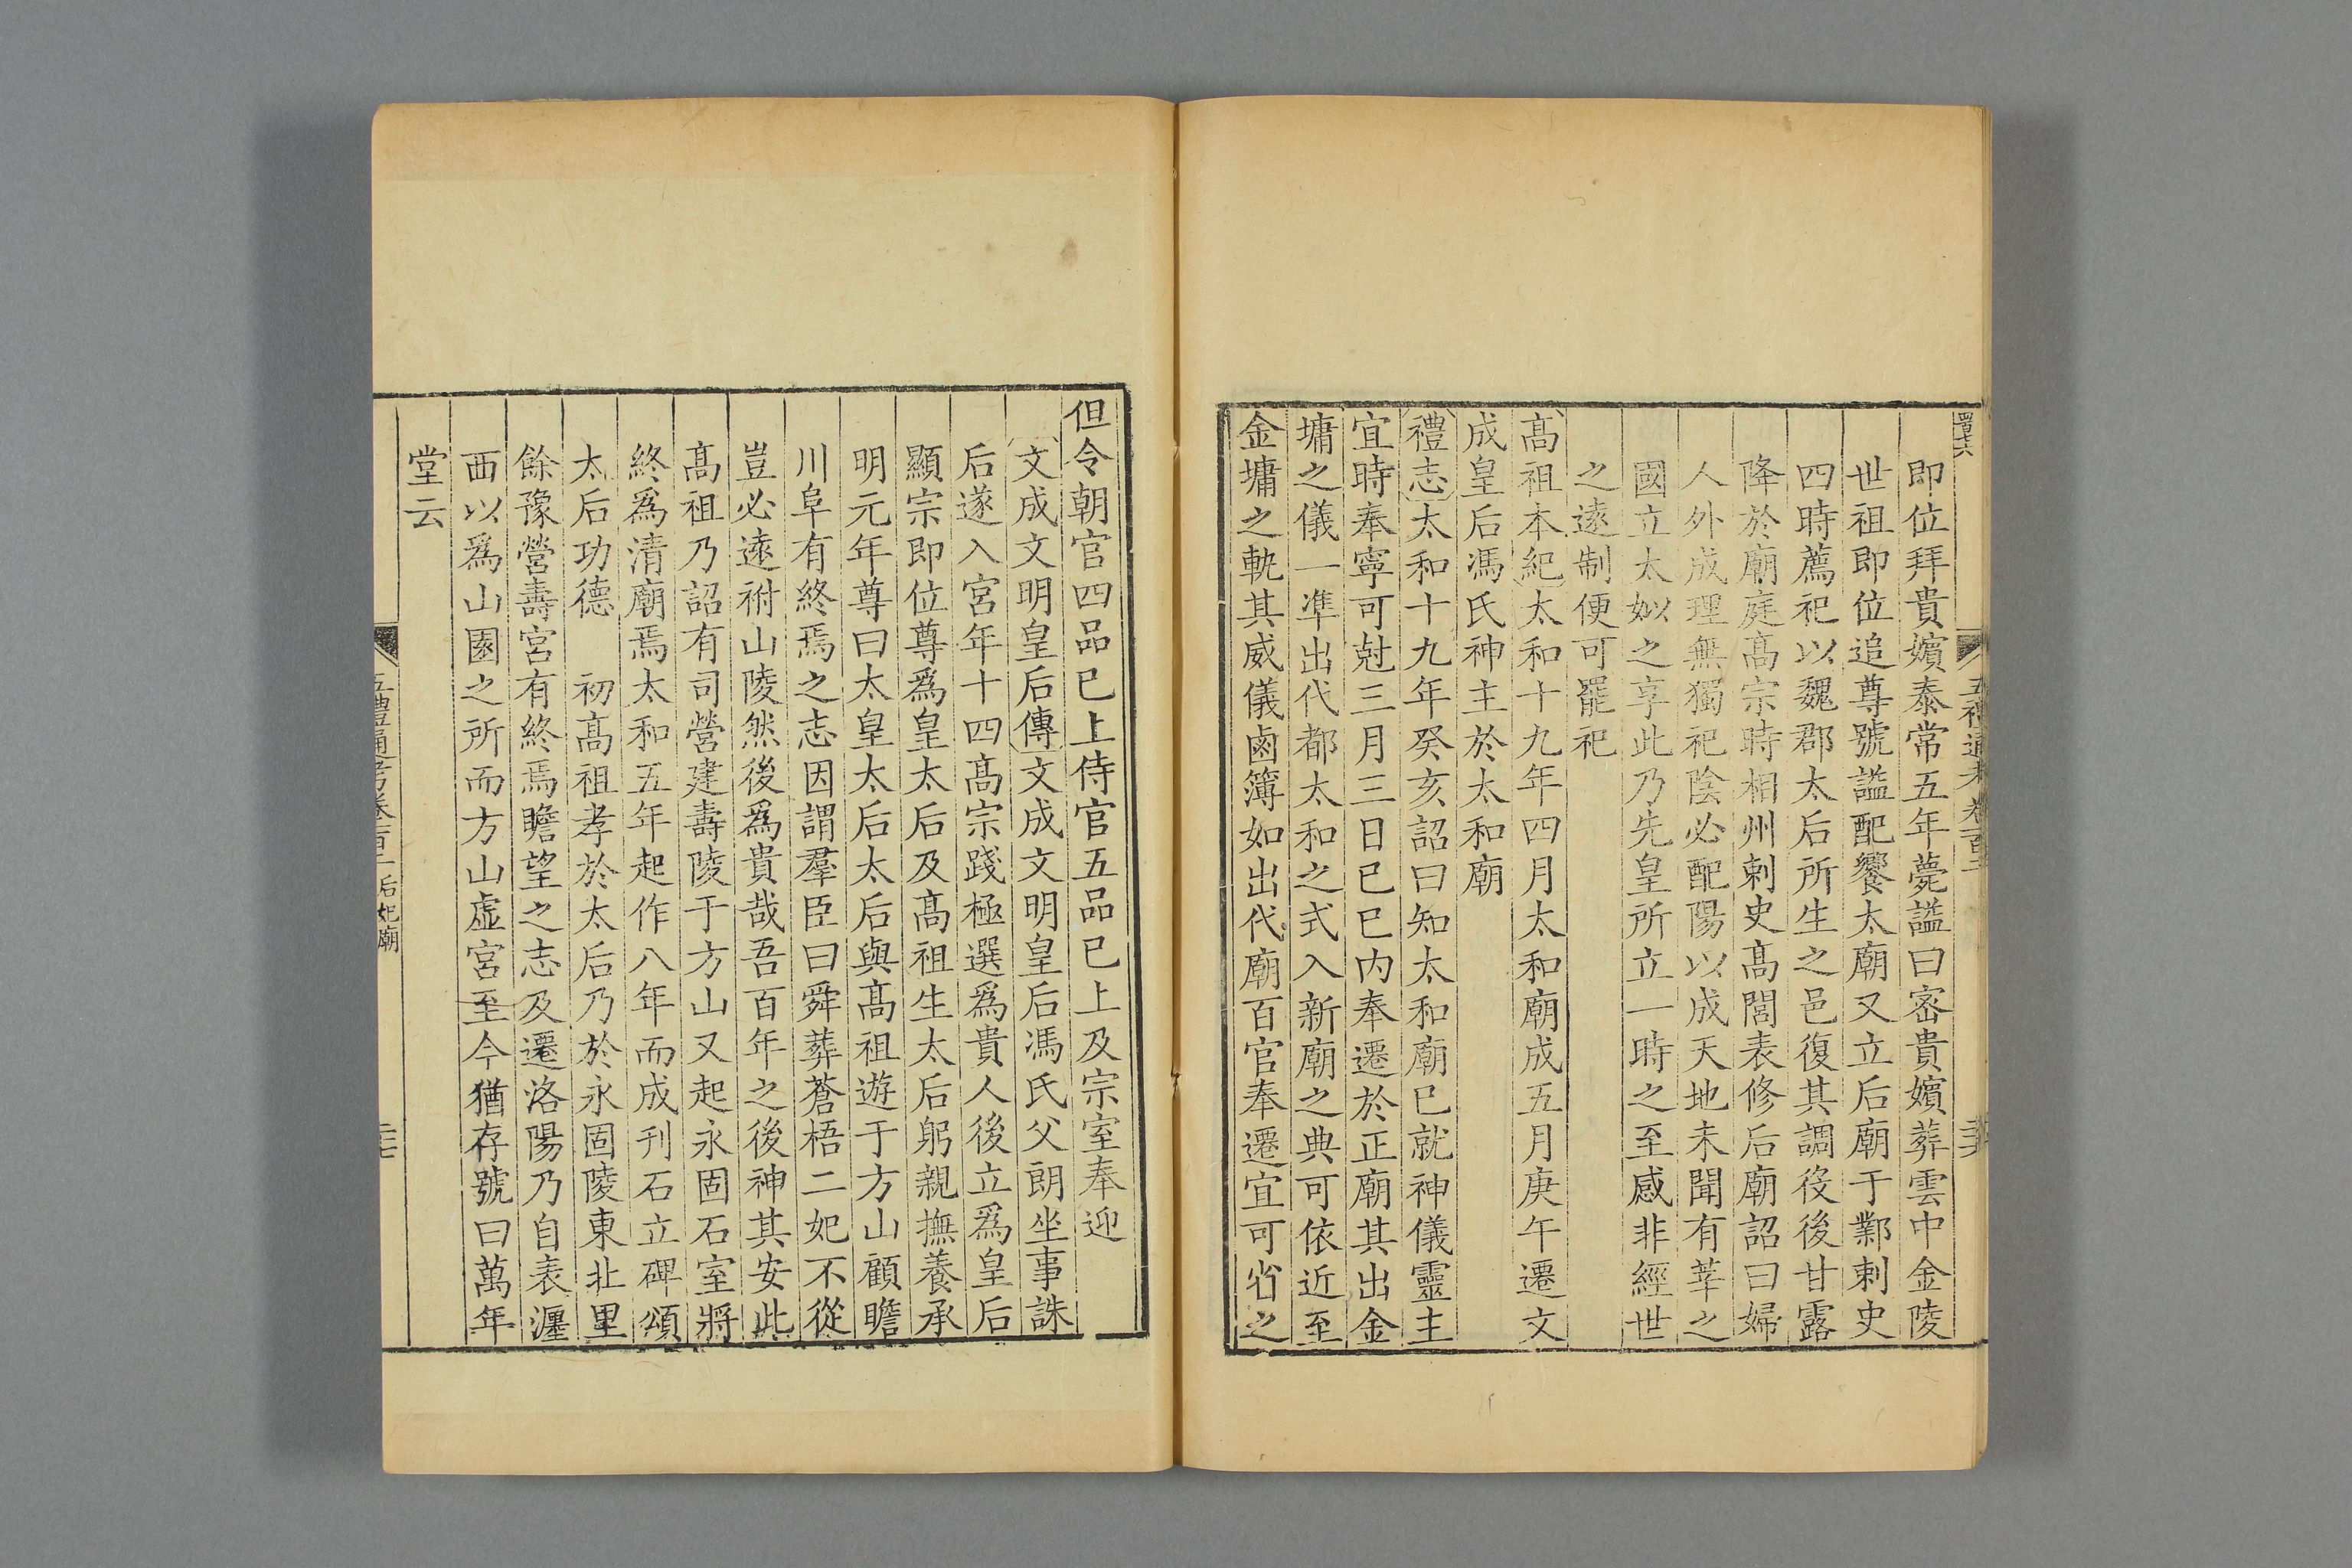 即位拜貴嬪泰常五年薨謚曰密貴嬪葬雲中金陵
世祖即位追尊號謚配饗太廟又立后廟于鄴刺史
四時薦祀以魏郡太后所生之邑復其調役後甘露
降於廟庭髙宗時相州刺史髙閭表修后廟詔曰婦
人外成理無獨祀陰必配陽以成天地未聞有莘之
國立太姒之享此乃先皇所立一時之至感非經世
之逺制便可罷祀
髙祖本紀太和十九年四月太和廟成五月庚午遷文
成皇后馮氏神主於太和廟
禮志太和十九年癸亥詔曰知太和廟已就神儀靈主
宜時奉寧可尅三月三日己巳内奉遷於正廟其出金
墉之儀一凖出代都太和之式入新廟之典可依近至
金墉之軌其威儀鹵簿如出代廟百官奉遷宜可省之
但令朝官四品已上侍官五品已上及宗室奉迎
文成文明皇后傳文成文明皇后馮氏父朗坐事誅
后遂入宮年十四髙宗踐極選爲貴人後立爲皇后
顯宗即位尊爲皇太后及髙祖生太后躬親撫養承
明元年尊曰太皇太后太后與髙祖遊于方山顧瞻
川阜有終焉之志因謂羣臣曰舜葬蒼梧二妃不從
豈必逺祔山陵然後爲貴哉吾百年之後神其安此
髙祖乃詔有司營建壽陵于方山又起永固石室將
終爲清廟焉太和五年起作八年而成刋石立碑頌
太后功德　初髙祖孝於太后乃於永固陵東北里
餘豫營壽宮有終焉瞻望之志及遷洛陽乃自表瀍
西以爲山園之所而方山虛宮至今猶存號曰萬年
堂云
五禮通考卷一百二　后妃廟